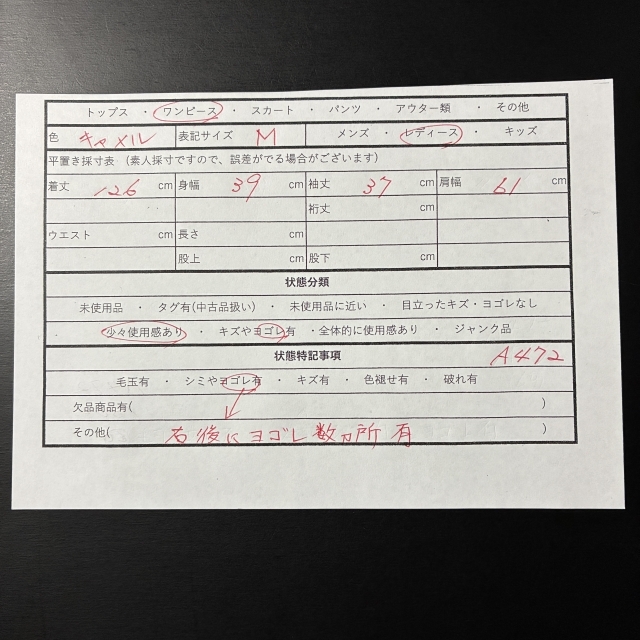 トップス ・ ワンピース ・ スカート ・ パンツ ・ アウター類 ・ その他
色 キャメル 表記サイズ M メンズ ・ レディース ・ キッズ
平置き採寸表 (素人採寸ですので、誤差がでる場合がございます)
着丈 126 cm 身幅 39 cm 袖丈 37 cm 肩幅 61 cm
裄丈 cm
ウエスト cm 長さ cm
股上 cm 股下 cm
状態分類
未使用品 ・ タグ有(中古品扱い) ・ 未使用品に近い ・ 目立ったキズ・ヨゴレなし
少々使用感あり ・ キズやヨゴレ有 ・全体的に使用感あり ・ ジャンク品
状態特記事項 A472
毛玉有 ・ シミやヨゴレ有 ・ キズ有 ・ 色褪せ有 ・ 破れ有
欠品商品有( )
その他( 右後にヨゴレ数カ所有 )